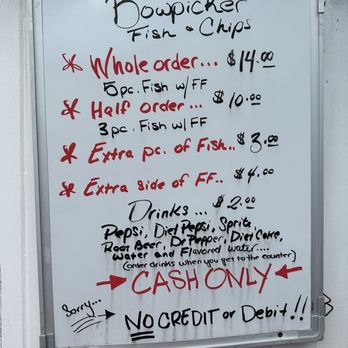 Bowpicker
Fish & Chips
Whole order... $14.00
5pc. Fish w/FF
Half order... $10.00
3pc. Fish w/FF
Extra pc. of Fish.. $3.00
Extra side of FF.. $4.00
Drinks... $2.00
Pepsi, Diet Pepsi, Sprite,
Root Beer, Dr Pepper, Diet Coke,
Water and Flavored Water....
(order drinks when you get to the counter)
→ CASH ONLY ←
Sorry...
NO CREDIT or Debit!!